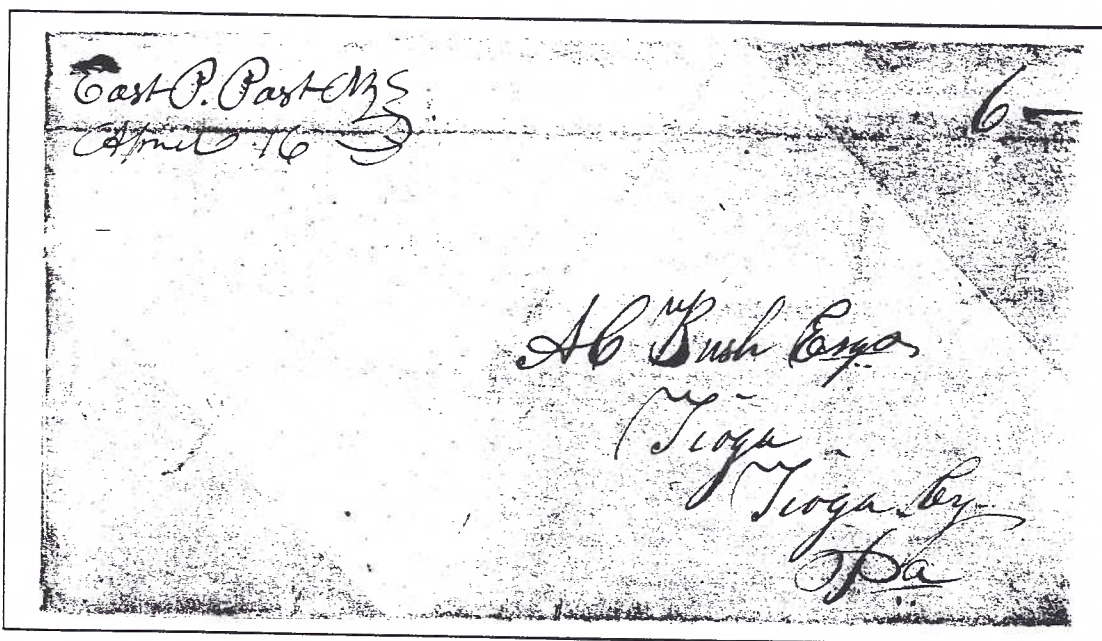 East P. Past
April 16
6
A C Bush Esqr
Tioga
Tioga Cy
Pa